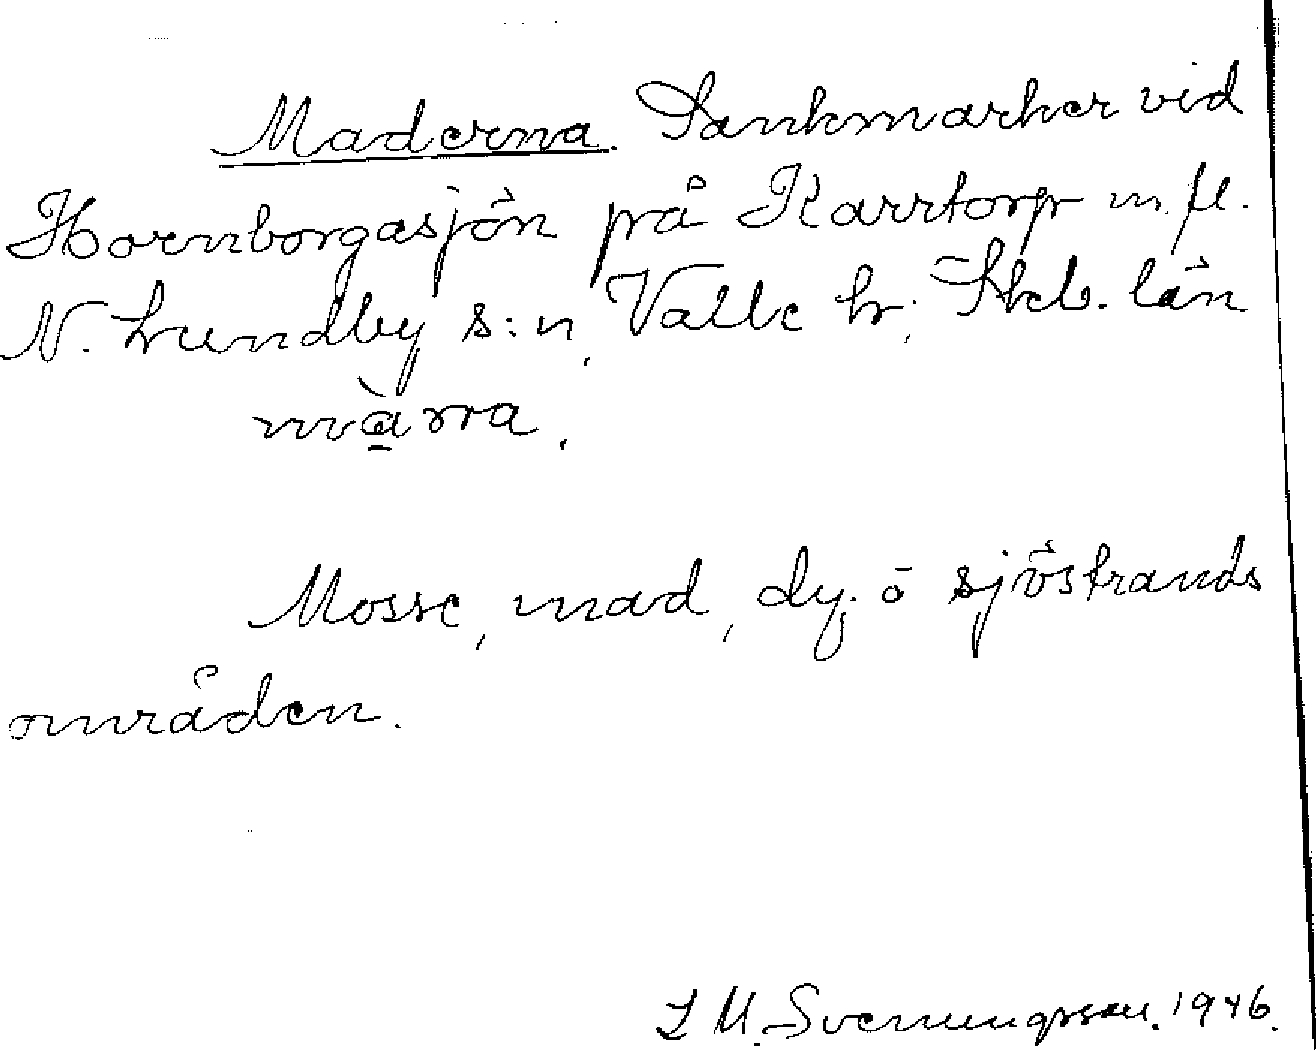 Maderna. Sankmarker vid
Hornborgasjön på Karrtorp m. fl.
N. Lundby s:n, Valle hr, Skb. län
mà̱rra.
Mosse, mad, dy. o sjöstrands
områden.
I M. Svenungsson. 1946.